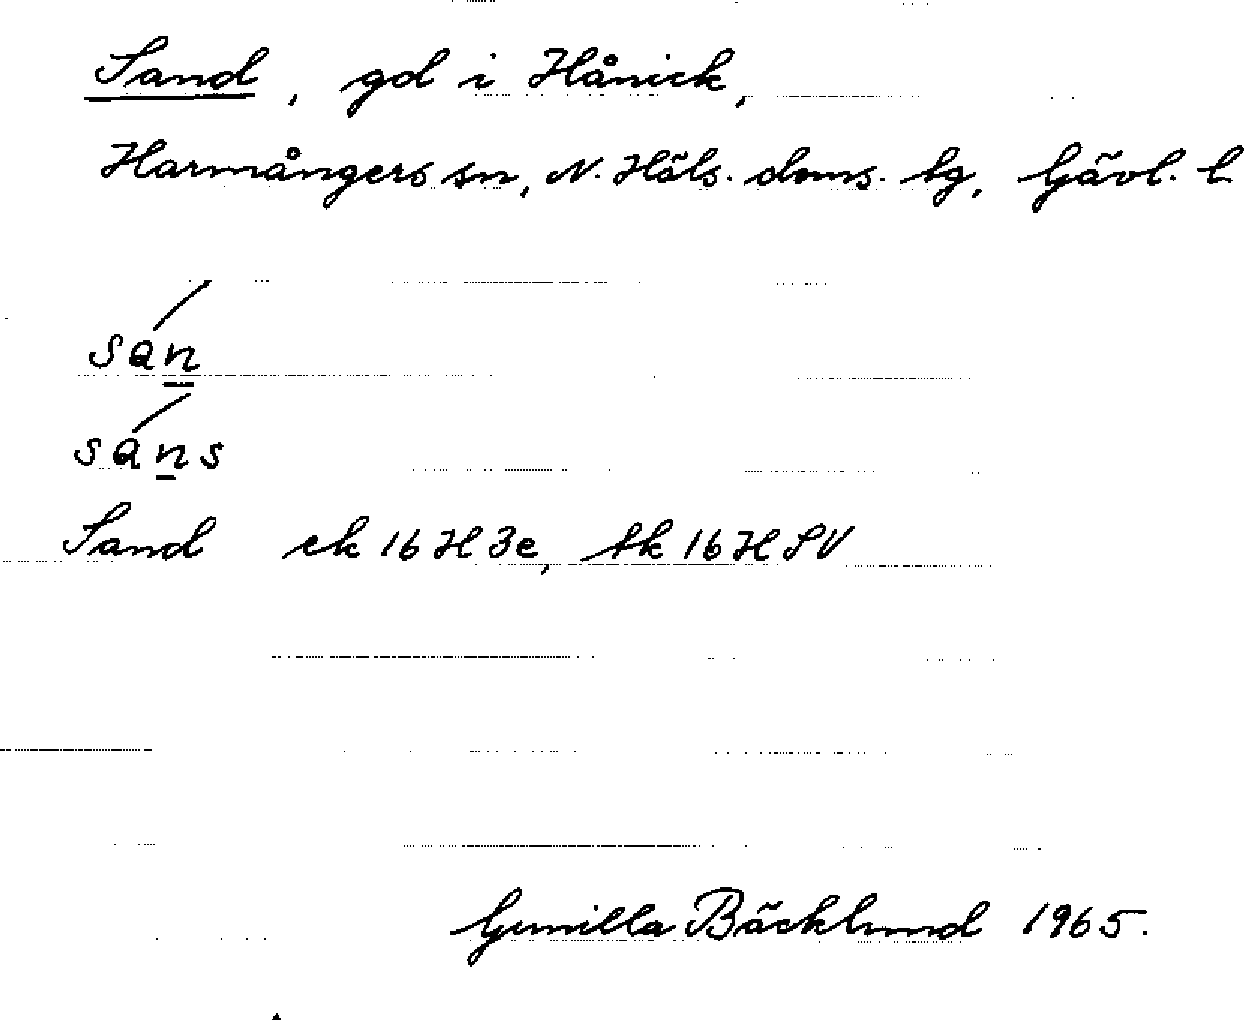 Sand, gd i Hånick,
Harmångers sn, N. Häls. doms. tg, Gävl. l
sán
sáns
Sand ek 16 H 3e, tk 16 H SV
Gunilla Bäcklund 1965.